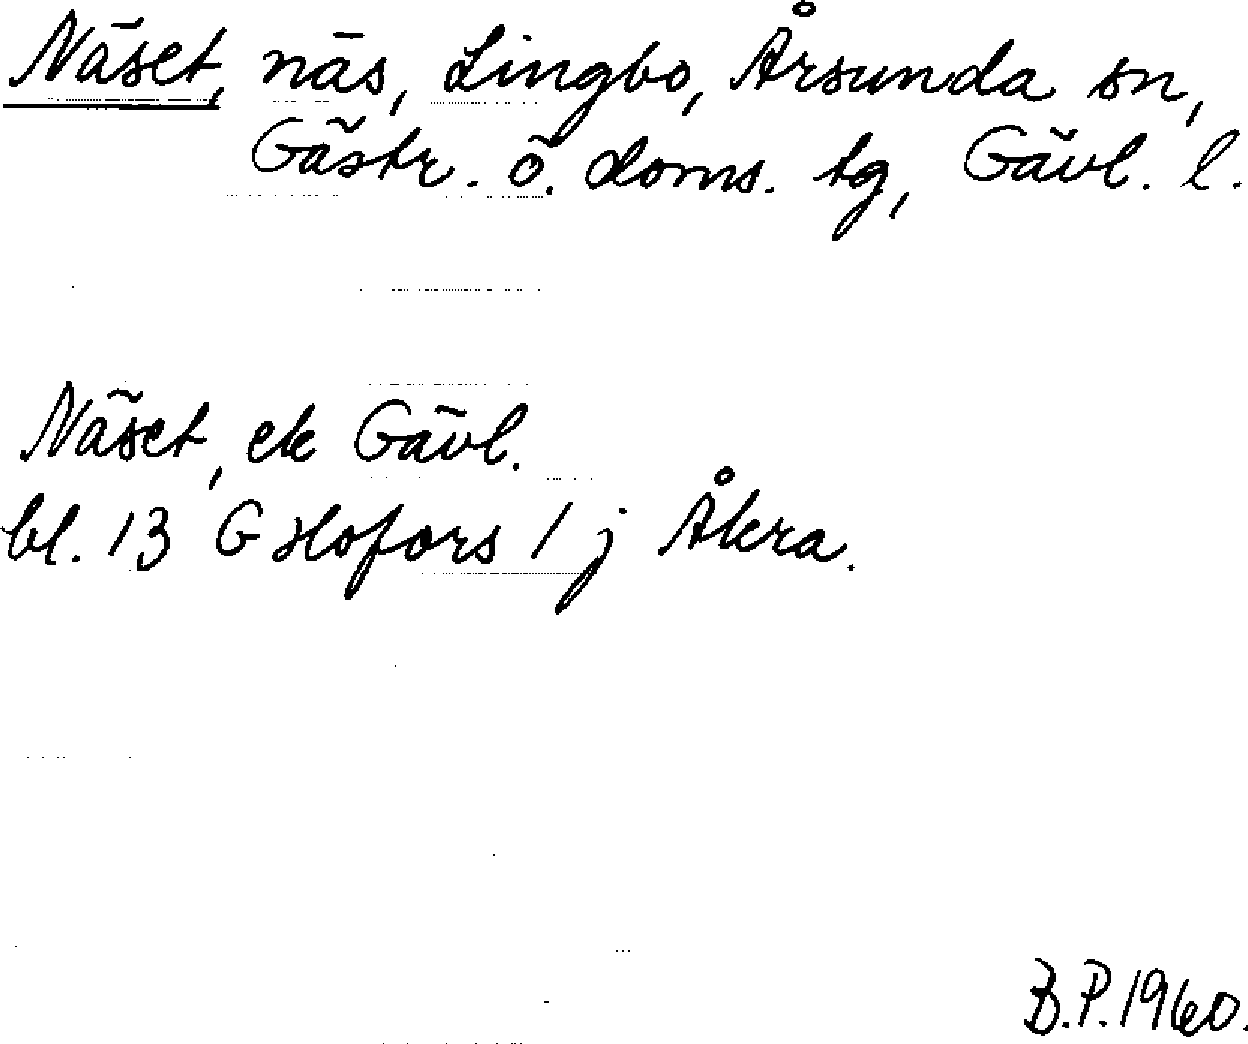 Näset, näs, Lingbo, Årsunda sn,
Gästr. ö. doms. tg, Gävl. l.
Näset, ek Gävl.
bl. 13 G Hofors 1 j Åkra.
B.P. 1960.